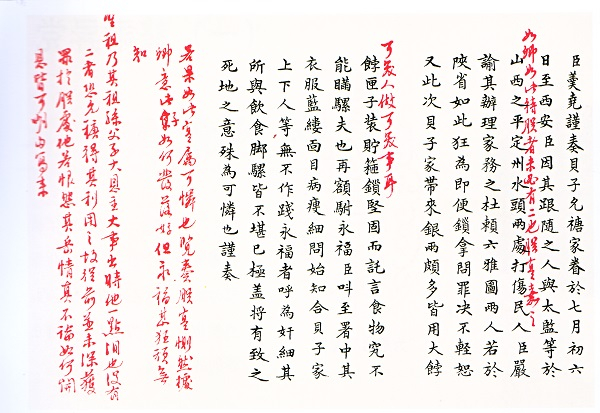 臣羹堯謹奏貝子允禟家眷於七月初六
日至西安臣因其跟隨之人與太監等於
如卿如此待朕者未必有二也朕實嘉之
山西之平定州水頭兩處打傷民人臣嚴
諭其辦理家務之杜賴六雅圖兩人若於
陝省如此狂為即便鎖拿問罪决不輕恕
又此次貝子家帶來銀兩頗多皆用大餑
可笑人做可笑事耳
餑匣子裝貯箍鎖堅固而託言食物究不
能瞞騾夫也再額駙永福臣叫至署中其
衣服藍縷面目病瘦細問始知合貝子家
上下人等無不作踐永福者呼為奸細其
所與飲食脚騾皆不堪已極盖將有致之
死地之意殊為可憐也謹奏
若果如此實屬可憐也覽奏朕實惻然
卿意如何發落好但永福甚狂頑無
知
聖祖乃其祖孫父子大恩主大事出時他一點淚也沒有
二者恐允禟得其利用之故從前並未深獲
罪於朕處 其岳情真不論如何
息皆可 寫來